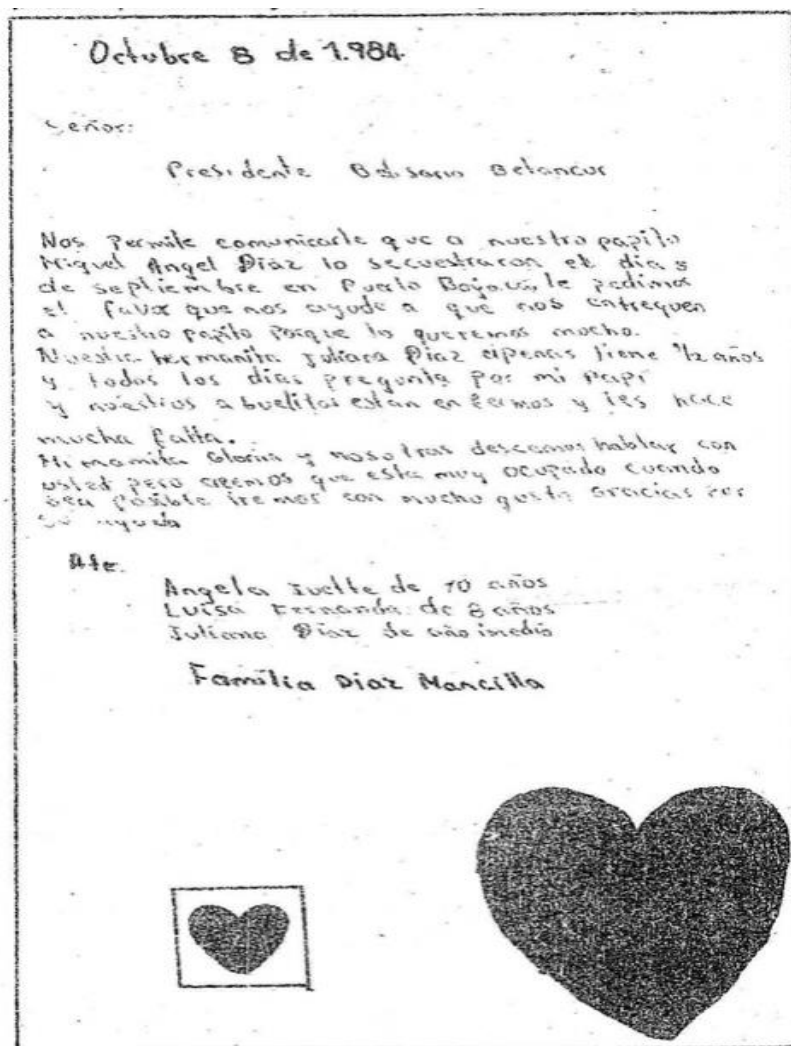 Octubre 8 de 1.984.
Señor:
Presidente Belisario Betancur
Nos Permite comunicarle que a nuestro papito
Miguel Angel Díaz lo secuestraron el día 5
de septiembre en Puerto Boyaca, le pedimos
el favor que nos ayude a que nos entreguen
a nuestro papito porque lo queremos mucho.
Nuestra hermanita Juliana Díaz apenas tiene 1/2 años
y todos los días pregunta por mi papi
y nuestros abuelitos estan enfermos y les hace
mucha falta.
Mi mamita Gloria y nosotras deseamos hablar con
usted pero creemos que esta muy ocupado cuando
sea posible iremos con mucho gusto gracias por
su ayuda
Ate.
Angela Ivette de 10 años
Luisa Fernanda de 8 años
Juliana Díaz de año imedio
Familia Diaz Mancilla